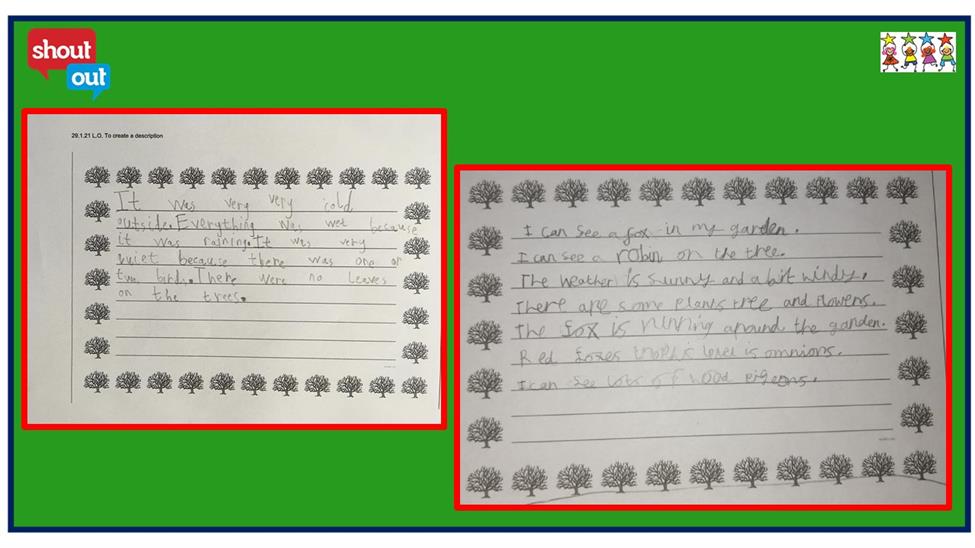 shout
out
29.1.21 L.O. To create a description
It was very very cold
outside. Everything was wet because
it was raining. It was very
quiet because there was one or
two birds. There were no leaves
on the trees.
I can see a fox in my garden.
I can see a robin on the tree.
The weather is sunny and a bit windy.
There are some plants tree and flowers.
The fox is running around the garden.
Red foxes level is omnions.
I can see lots of wood pigeons.